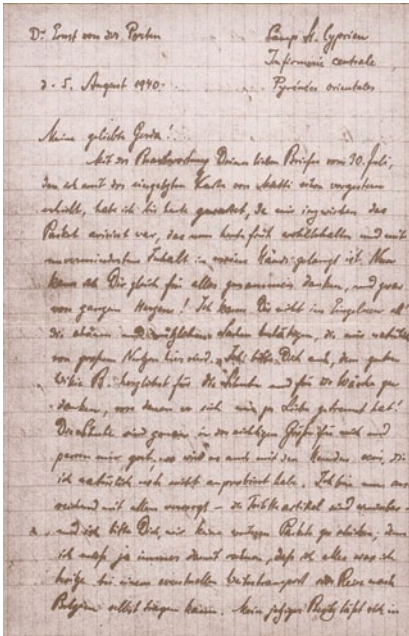 Dr. Ernst von der Porten
Camp St. Cyprien
Infirmerie centrale
d. 5. August 1940.
Pyrénées orientales
Meine geliebte Gerda!
Mit der Beantwortung Deines lieben Briefes vom 30. Juli,
den ich mit der eingelegten Karte von Matti schon vorgestern
erhielt, habe ich bis heute gewartet, da mir inzwischen das
Paket avisiert war, das nun heute früh wohlbehalten und mit
unvermindertem Inhalt in meine Hände gelangt ist. Nun
kann ich Dir gleich für alles zusammen danken, und zwar
von ganzem Herzen! Ich kann Dir nicht im Einzelnen all
die schönen und nützlichen Sachen bestätigen, die mir natürlich
von großem Nutzen hier sind. Ich bitte Dich auch, dem guten
B. herzlichst für die Schuhe und für die Wäsche zu
danken, von denen er sich mir zu Liebe getrennt hat!
Die Schuhe sind genau in der richtigen Größe für mich und
passen mir gut, so wird es auch mit den Hemden sein, die
ich natürlich noch nicht anprobiert habe. Ich bin nun
reichend mit allem versorgt –
und ich bitte Dich, mir keine weiteren Pakete zu schicken, denn
ich muß ja immer damit rechnen, daß ich alles was ich
besitze bei einem eventuellen Weitertransport oder Reise nach
Belgien selbst tragen kann. Mein jetziger Besitz läßt sich in